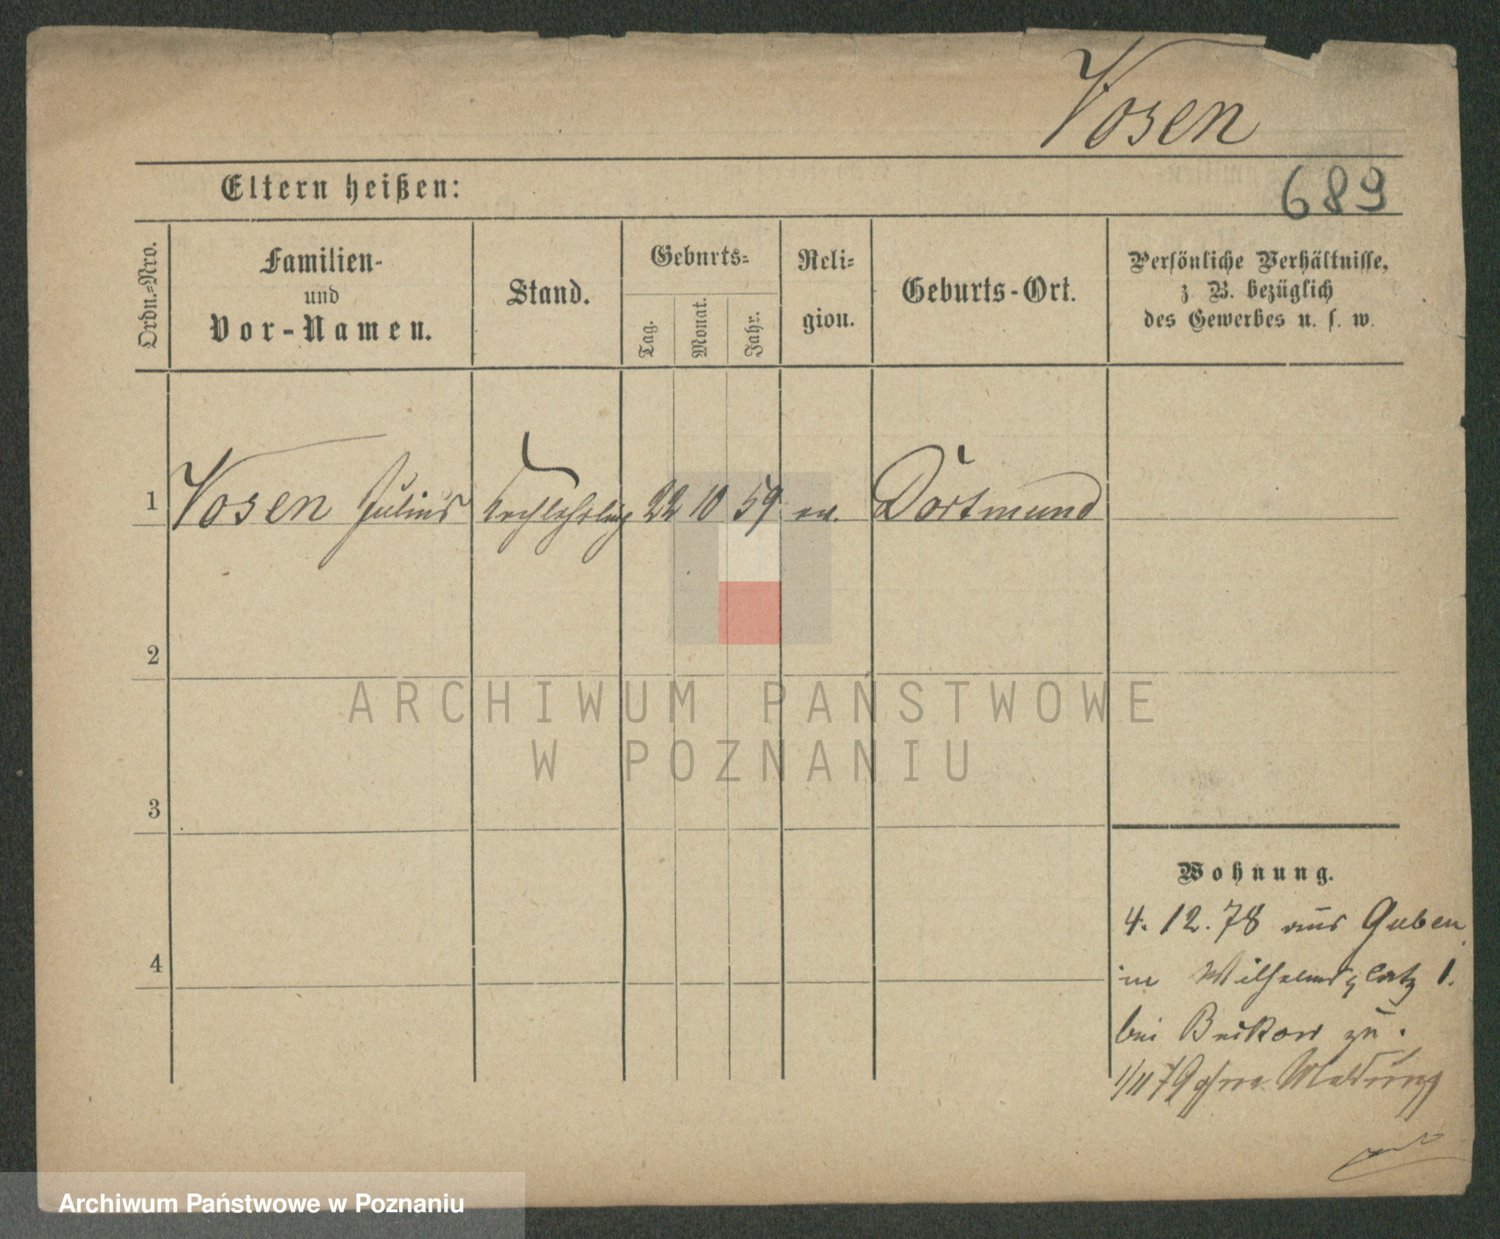 Vosen
689
Eltern heißen:
Ordn.-Nro.
Familien-
und
Vor-Namen.
Stand.
Geburts-
Tag.
Monat.
Jahr.
Reli-
gion.
Geburts-Ort.
Persönliche Verhältnisse,
z. B. bezüglich
des Gewerbes u. s. w.
1 Vosen Julius 22 10 59 ev. Dortmund
2
3
4
Wohnung.
4. 12. 78 aus Guben
in Wilhelmsplatz 1.
bei zu.
1/11 79 ohne Meldung
ARCHIWUM PAŃSTWOWE
W POZNANIU
Archiwum Państwowe w Poznaniu